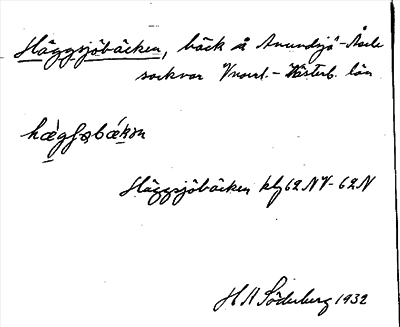 Häggsjöbäcken, bäck å Anundsjö-Åsele
socknar Vnorrl.-Västerb. län
Häggsjöbäcken kbg 62 NV-62 N
H A Söderberg 1932